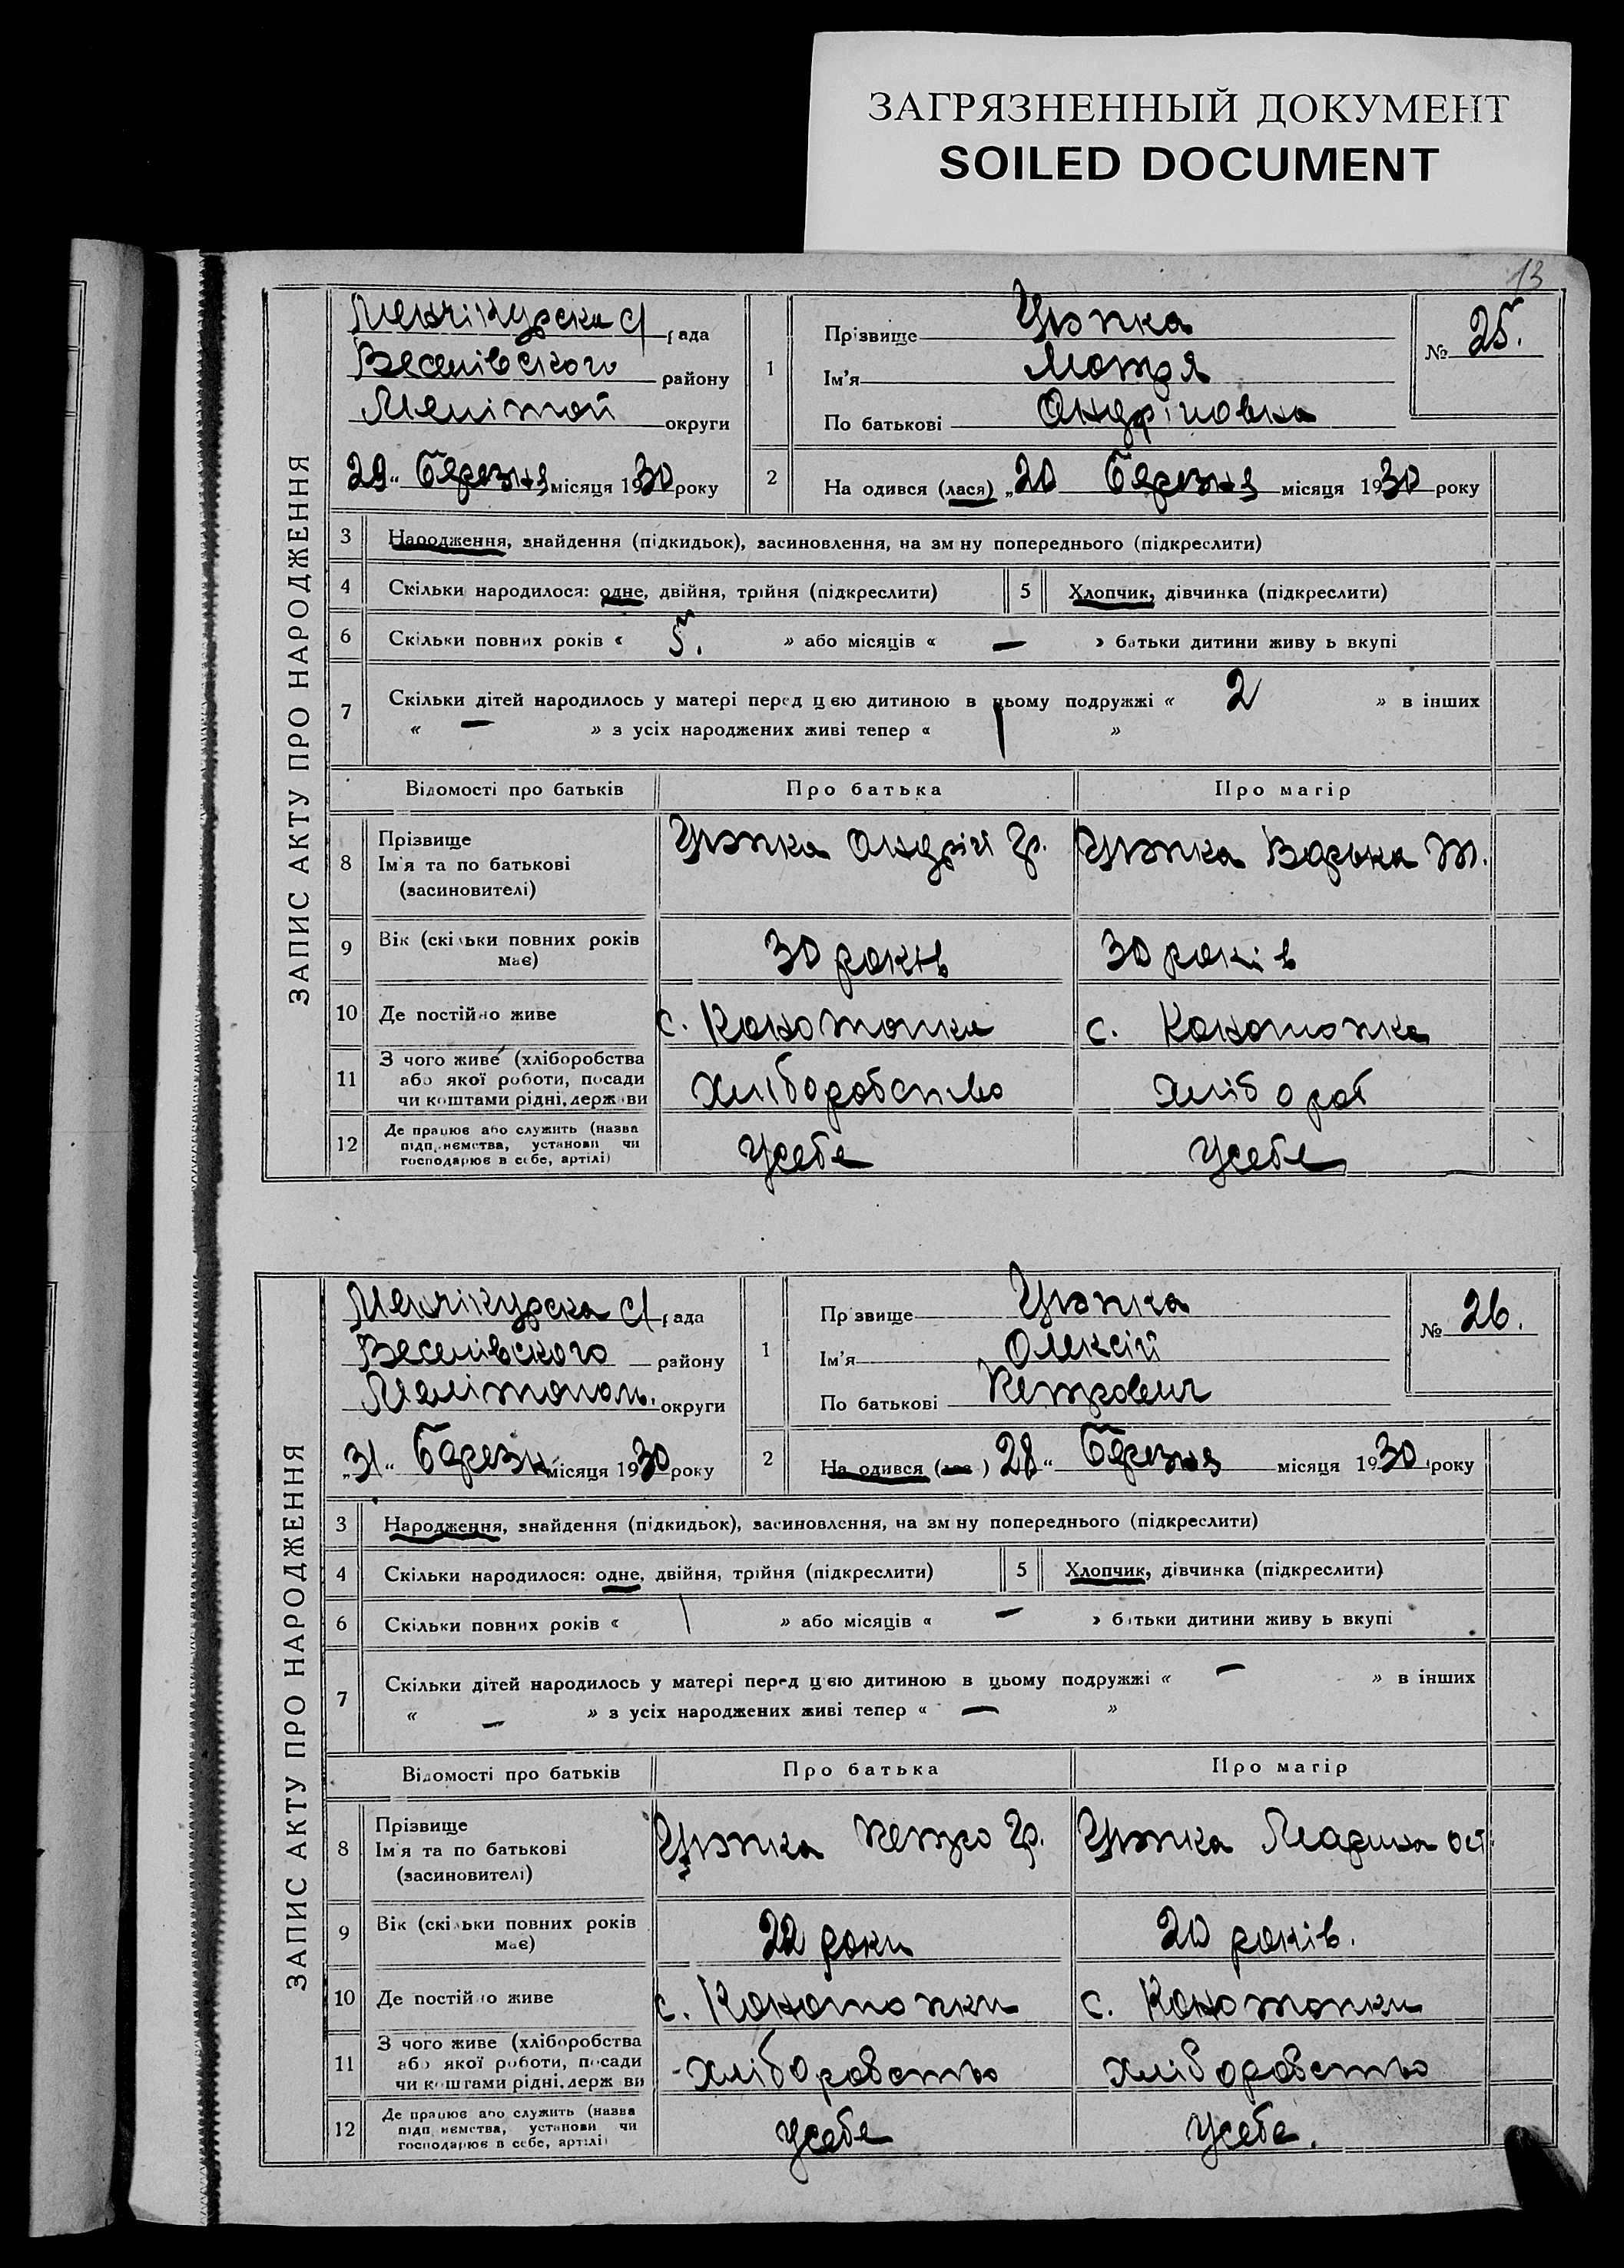 ЗАГРЯЗНЕННЫЙ ДОКУМЕНТ
SOILED DOCUMENT
13
ЗАПИС АКТУ ПРО НАРОДЖЕННЯ
Менчікурска С/ рада
Веселівского району
Меліт округи
29 " березня місяця 1930 року
1
Прізвище Цюпка
Ім'я Мотря
По батькові Андріївна
№ 25.
2
На одився (лася) „ 20 березня місяця 1930 року
3 Народження, знайдення (підкидьок), засиновлення, на зм ну попереднього (підкреслити)
4 Скільки народилося: одне, двійня, трійня (підкреслити) 5 Хлопчик, дівчинка (підкреслити)
6 Скільки повних років « 5. » або місяців « — » батьки дитини живу ь вкупі
7 Скільки дітей народилось у матері перед цією дитиною в цьому подружжі « 2 » в інших
« — » з усіх народжених живі тепер « 1 »
Відомості про батьків Про батька Про матір
8 Прізвище
Ім'я та по батькові
(засиновителі)
Цюпка Андрій Гр. Цюпка Варька Т.
9 Вік (скільки повних років
має)
30 років 30 років
10 Де постійно живе с. Конотопка с. Конотопка
11 З чого живе (хліборобства
або якої роботи, посади
чи коштами рідні, держави
Хліборобство Хлібороб
12 Де працює або служить (назва
підп иємства, установи чи
господарює в себе, артілі)
Усебе Усебе
ЗАПИС АКТУ ПРО НАРОДЖЕННЯ
Менчікурска С/ рада
Веселівского району
Мелітополь. округи
„ 31 " березн місяця 1930 року
1
Пр звище Цюпка
Ім'я Олексій
По батькові Петрович
№ 26.
2
На одився ( ) 28 " березня місяця 1930 року
3 Народження, знайдення (підкидьок), засиновлення, на зм ну попереднього (підкреслити)
4 Скільки народилося: одне, двійня, трійня (підкреслити) 5 Хлопчик, дівчинка (підкреслити)
6 Скільки повних років « 1 » або місяців « — » батьки дитини живу ь вкупі
7 Скільки дітей народилось у матері перед цією дитиною в цьому подружжі « — » в інших
« — » з усіх народжених живі тепер « — »
Відомості про батьків Про батька Про матір
8 Прізвище
Ім'я та по батькові
(засиновителі)
Цюпка Петро Гр. Цюпка Марина Ост
9 Вік (скільки повних років
має)
22 роки 20 років.
10 Де постійно живе с. Конотопки с. Конотопки
11 З чого живе (хліборобства
або якої роботи, посади
чи коштами рідні, держ ви
Хліборобство Хліборобство
12 Де працює або служить (назва
підп иємства, установи чи
господарює в себе, артілі)
Усебе Усебе.